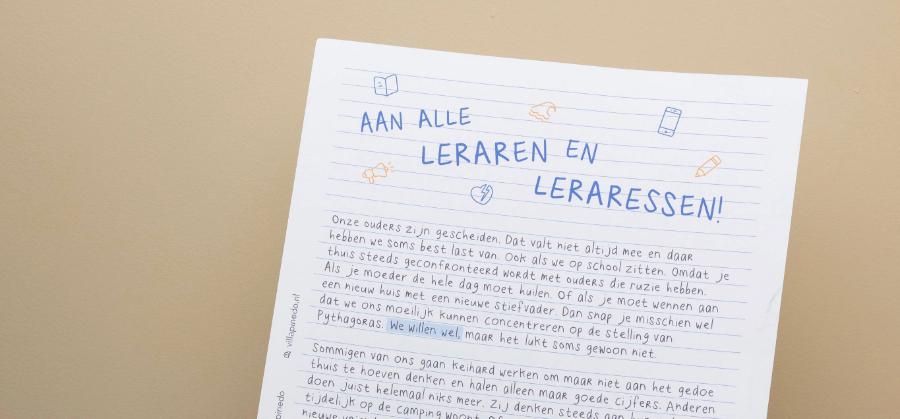 AAN ALLE
LERAREN EN
LERARESSEN!
Onze ouders zijn gescheiden. Dat valt niet altijd mee en daar
hebben we soms best last van. Ook als we op school zitten. Omdat je
thuis steeds geconfronteerd wordt met ouders die ruzie hebben.
Als je moeder de hele dag moet huilen. Of als je moet wennen aan
een nieuw huis met een nieuwe stiefvader. Dan snap je misschien wel
dat we ons moeilijk kunnen concentreren op de stelling van
Pythagoras. We willen wel, maar het lukt soms gewoon niet.
Sommigen van ons gaan keihard werken om maar niet aan het gedoe
thuis te hoeven denken en halen alleen maar goede cijfers. Anderen
doen juist helemaal niks meer. Zij denken steeds aan
tijdelijk op de camping woont
villapinedo.nl